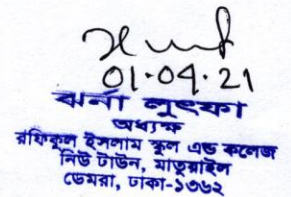 01.04.21
ঝর্না লুৎফা
অধ্যক্ষ
রফিকুল ইসলাম স্কুল এন্ড কলেজ
নিউ টাউন, মাতুয়াইল
ডেমরা, ঢাকা-১৩৬২